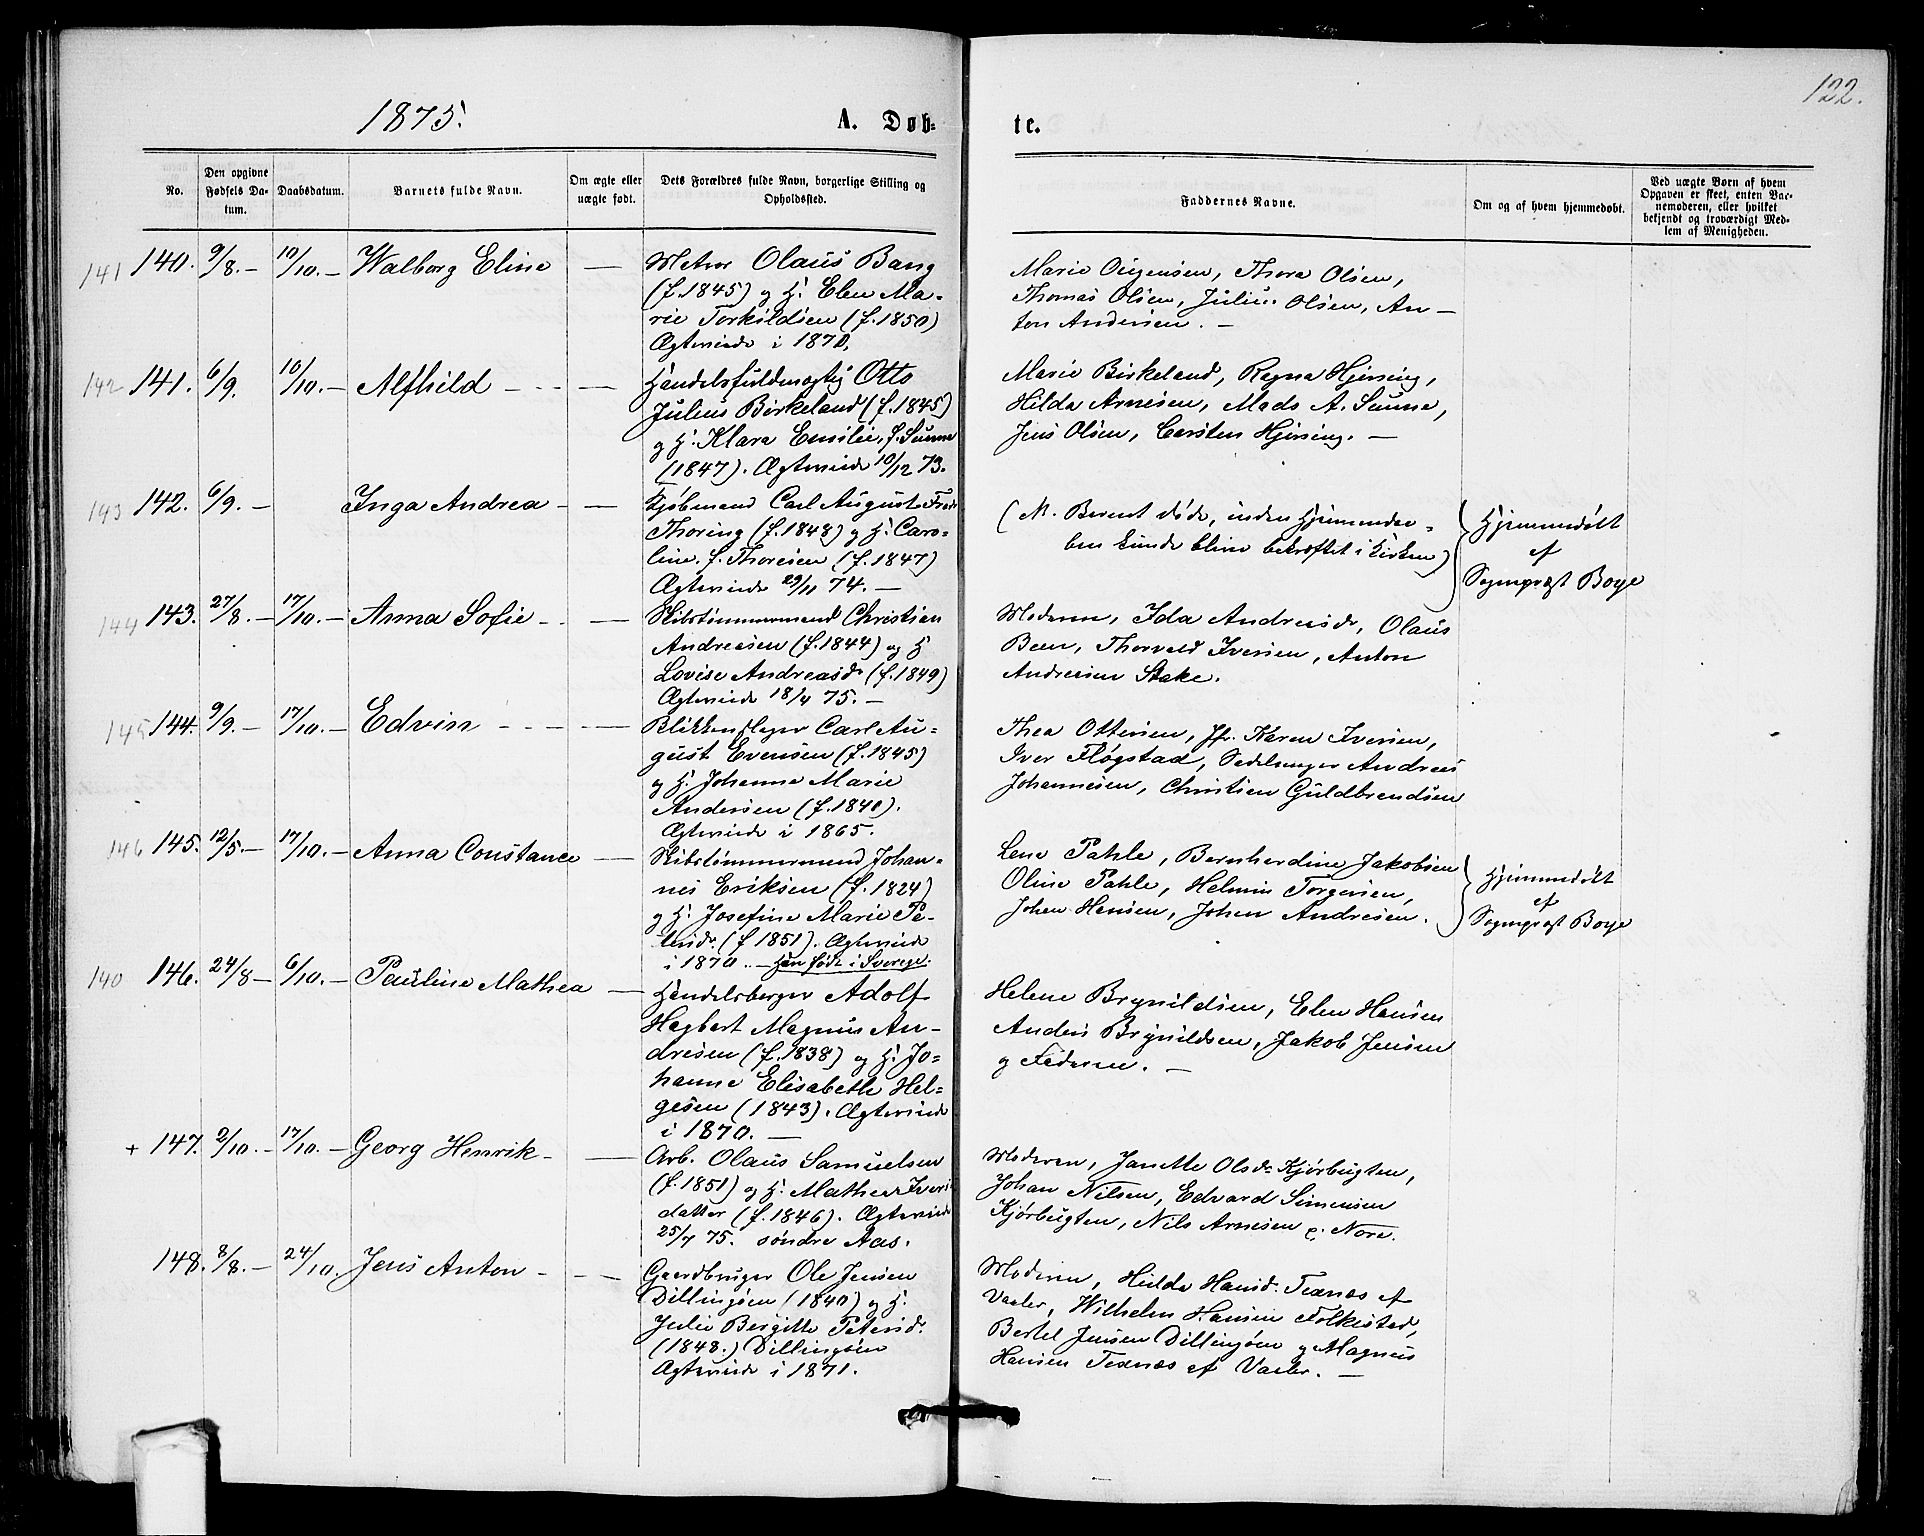 122.
1875.
A. Døb-
te.
No.
Den opgivne Fødsels Da-
tum.
Daabsdatum.
Barnets fulde Navn.
Om ægte eller
uægte født.
Dets Forældres fulde Navn, borgerlige Stilling og
Opholdssted.
Faddernes Navne.
Om og af hvem hjemmedøbt.
Ved uægte Børn af hvem
Opgaven er skeet, enten Bar-
nemoderen, eller hvilket
bekjendt og troværdigt Med-
lem af Menigheden.
141 140. 9/8. — 10/10. — Walborg Eline —
Matros Olaus Bang
(f. 1845) og H. Elen Ma-
rie Torkildsen (f. 1850)
Ægteviede i 1870.
Marie Jürgensen, Thora Olsen,
Thomas Olsen, Julius Olsen, An-
ton Andersen. —
142 141. 6/9. 10/10. — Alfhild — — —
Handelsfuldmægtig Otto
Julius Birkeland (f. 1845)
og H. Klara Emilie, f. Sunne
(1847). Ægteviede 10/12 73.
Marie Birkeland, Ragna Hjersing,
Hilda Arnesen, Mads A. Sunne,
Jens Olsen, Carsten Hjersing. —
143 142. 6/9. — Inga Andrea — —
Kjøbmand Carl August Fredr.
Thoring (f. 1848) og H. Caro-
line f. Thoresen (f. 1847)
Ægteviede 29/11 74. —
(N. Barnet døde, inden Hjemmedaa-
ben kunde blive bekræftet i Kirken)
Hjemmedøbt
af
Sognepræst Boye
144 143. 27/8. — 17/10. — Anna Sofie — —
Skibstømmermand Christian
Andreasen (f. 1844) og H.
Lovise Andreasdr (f. 1849)
Ægteviede 18/4 75. —
Moderen, Ida Andreasdr, Olaus
Been, Thorvald Iversen, Anton
Andresen Stake.
145 144. 9/9. — 17/10. — Edvin — — —
Blikkenslager Carl Au-
gust Evensen (f. 1845)
og H. Johanne Marie
Andersen (f. 1840).
Ægteviede i 1865.
Thea Ottersen, Jfr. Karen Iversen,
Iver Fløgstad, Sadelmager Andreas
Johannesen, Christian Guldbrandsen
146 145. 12/5. — 17/10. — Anna Constance —
Skibstømmermand Johan-
nes Eriksen (f. 1824)
og H. Josefine Marie Pe-
tersdr. (f 1851). Ægteviede
i 1870. — Han født i Sverige.
Lene Pahle, Bernhardine Jakobsen
Oline Pahle, Helmin Torgersen,
Johan Hansen, Johan Andresen.
Hjemmedøbt
af
Sognepræst Boye
140 146. 24/8 — 6/10. — Pauline Mathea —
Handelsborger Adolf
Hagbart Magnus An-
dresen (f. 1838) og H. Jo-
hanne Elisabeth Hel-
gesen (1843). Ægteviede
i 1870. —
Helene Brynildsen, Elen Hansen
Anders Brynildsen, Jakob Jensen
og Faderen. —
+ 147. 2/10. — 17/10. — Georg Henrik — —
Arb. Olaus Samuelsen
(f. 1851) og H. Mathea Ivers-
datter (f. 1846). Ægteviede
25/4 75. søndre Aas.
Moderen, Janette Olsdr Kjørbugten,
Johan Nilsen, Edvard Simensen
Kjørbugten, Nils Arnesen e. Nore.
148. 8/8. — 24/10. Jens Anton — — —
Gaardbruger Ole Jensen
Dillingøen (1840) og H.
Julie Bergitte Petersdr.
(1848.) Dillingøen
Ægteviede i 1871.
Moderen, Hilda Hansd. Texnæs af
Vaaler, Wilhelm Hansen Folkestad,
Bertel Jensen Dillingøen og Magnus
Hansen Texnæs af Vaaler. —